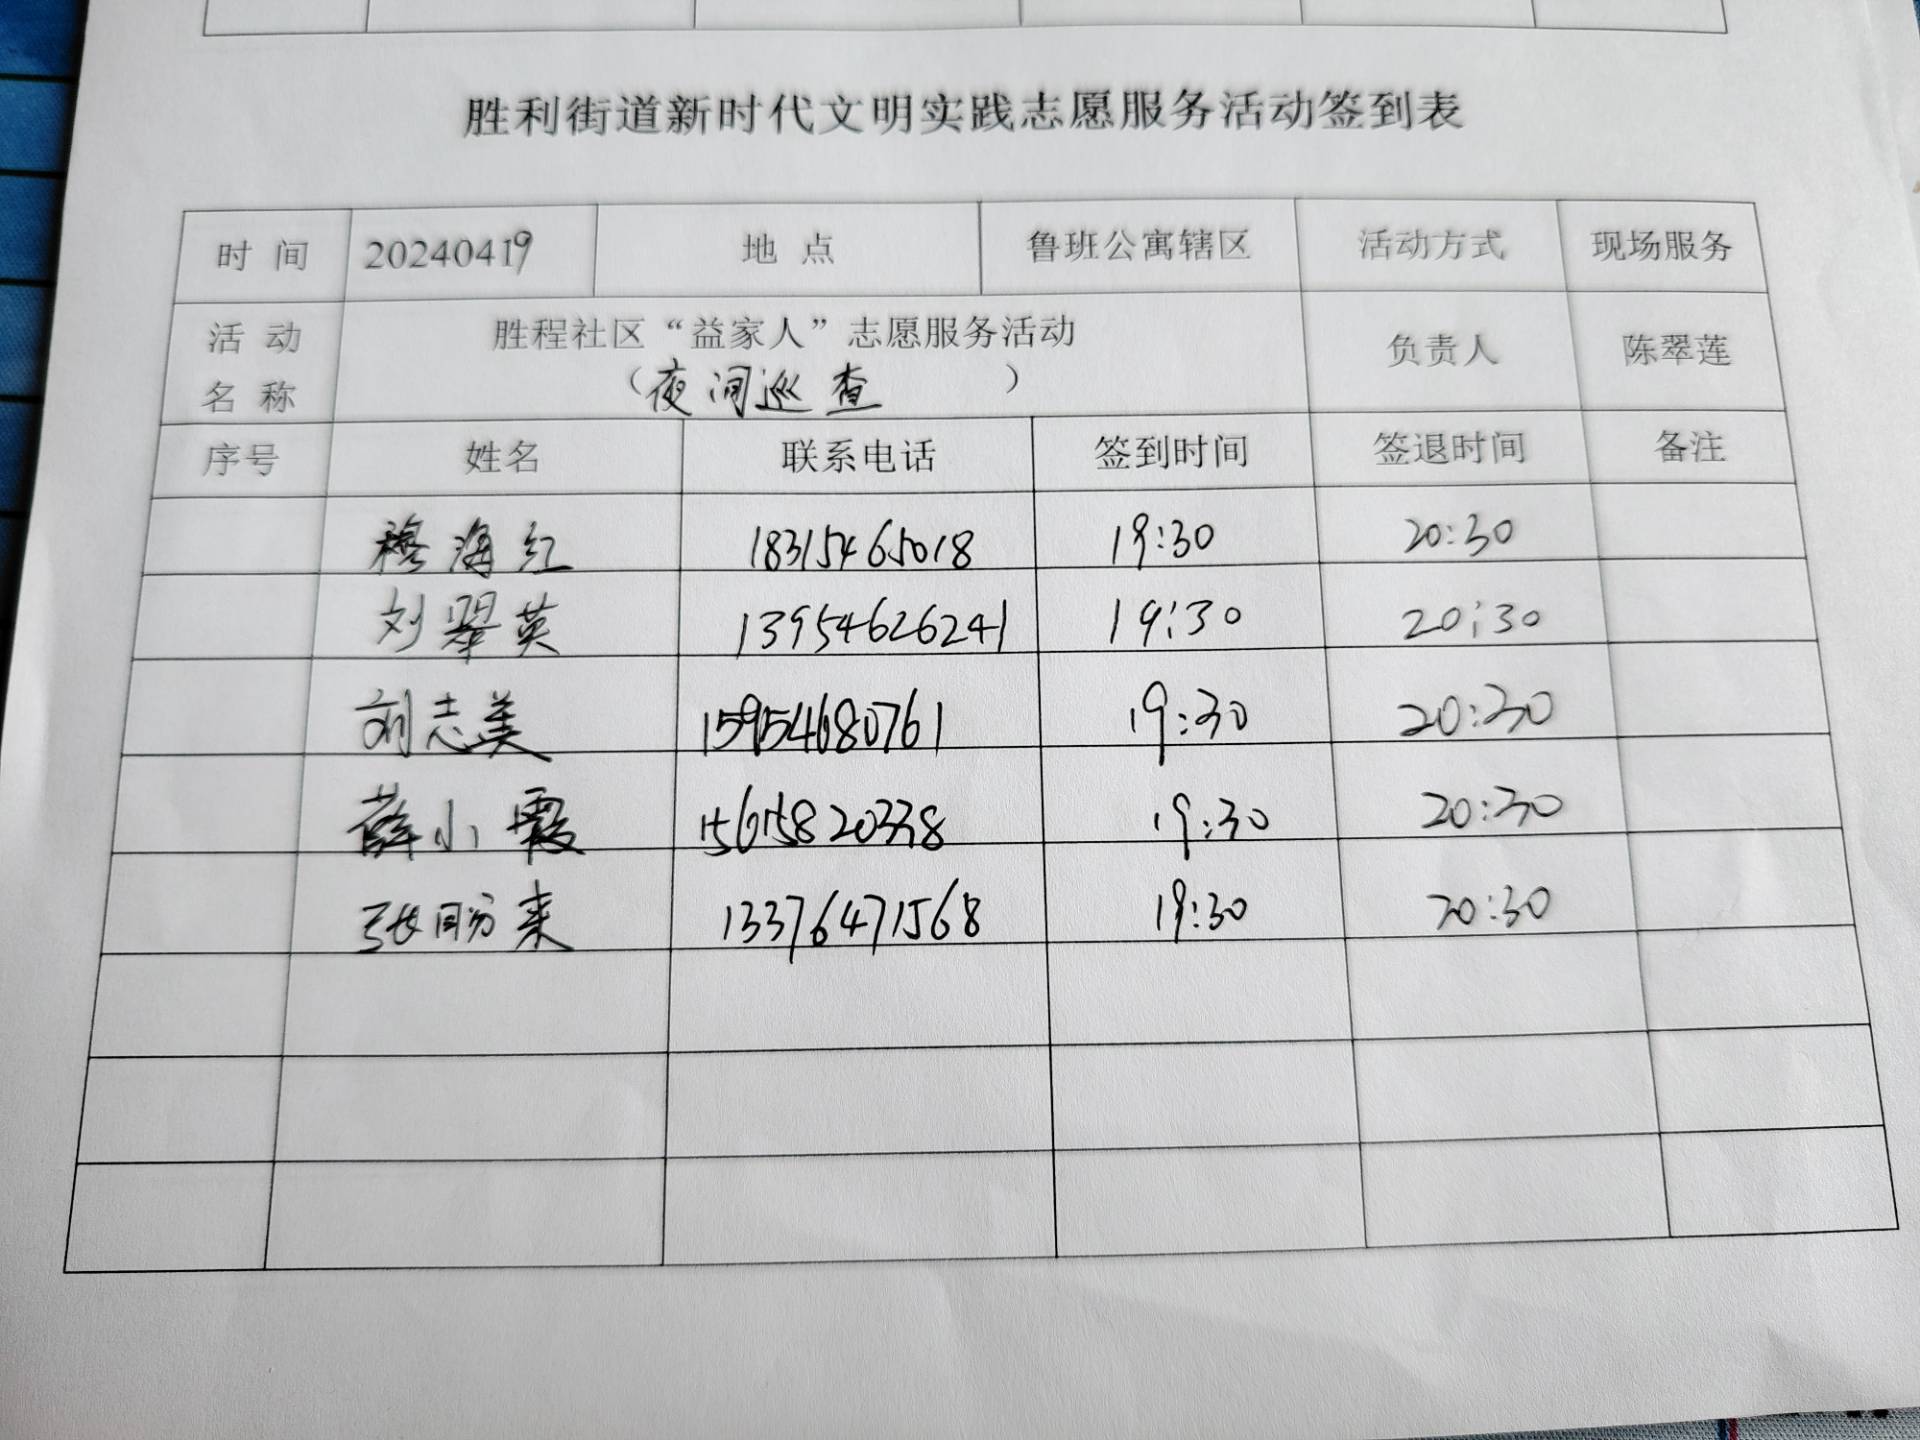 胜利街道新时代文明实践志愿服务活动签到表
时 间 20240419 地 点 鲁班公寓辖区 活动方式 现场服务
活 动 名 称 胜程社区“益家人”志愿服务活动 负责人 陈翠莲
（夜间巡查 ）
序号 姓名 联系电话 签到时间 签退时间 备注
穆海红 18315465018 19:30 20:30
刘翠英 13954626241 19:30 20:30
刘志美 15954680761 19:30 20:30
薛小霞 15615820338 19:30 20:30
张 来 13376471568 19:30 20:30